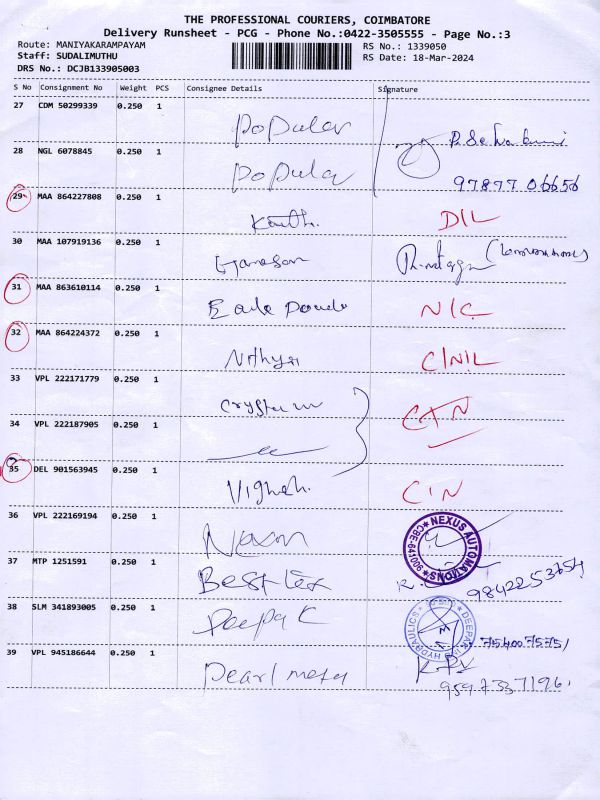 THE PROFESSIONAL COURIERS, COIMBATORE
Delivery Runsheet - PCG - Phone No.:0422-3505555 - Page No.:3
Route: MANIYAKARAMPAYAM RS No.: 1339050
Staff: SUDALIMUTHU RS Date: 18-Mar-2024
DRS No.: DCJB133905003
S No Consignment No Weight PCS Consignee Details Signature
27 CDM 50299339 0.250 1
Popular
28 NGL 6078845 0.250 1
Popular 97877 06656
29 MAA 864227808 0.250 1
D/L
30 MAA 107919136 0.250 1
Ganesan
31 MAA 863610114 0.250 1
N/C
32 MAA 864224372 0.250 1
Nithya C/N/L
33 VPL 222171779 0.250 1
34 VPL 222187905 0.250 1
35 DEL 901563945 0.250 1
Vignesh
36 VPL 222169194 0.250 1
NEXUS AUTOMATIONS
37 MTP 1251591 0.250 1
Bestlex
38 SLM 341893005 0.250 1
Deepak
DEEPAK HYDRAULICS
39 VPL 945186644 0.250 1
Pearl
9597337196